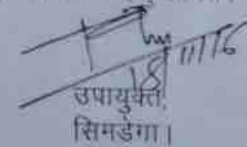 18/11/16
उपायुक्त,
सिमडेगा।